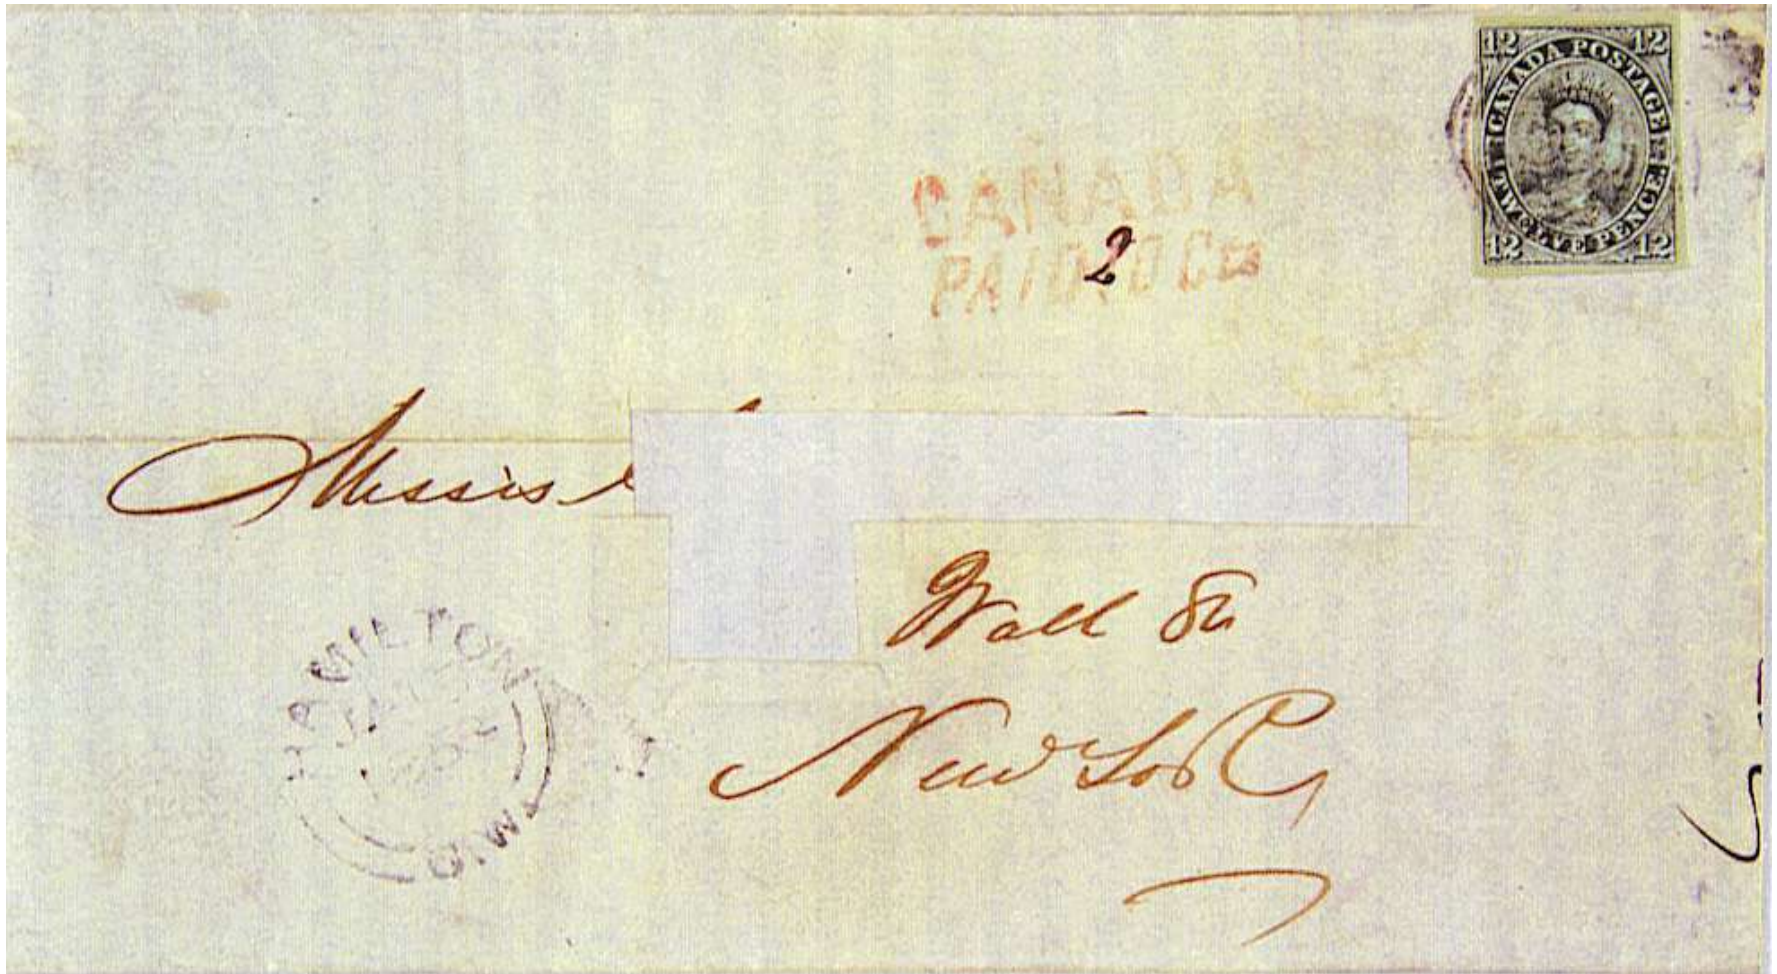 12 12
CANADA POSTAGE
TWELVE PENCE
12 12
CANADA
PAID 10 Cts
2
Messrs
Wall St
New York
HAMILTON
JAN
1852
C.W.